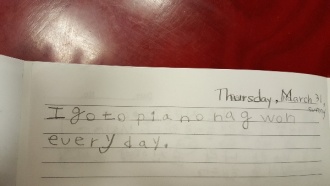 Thursday, March 31
sunny
I go to piano hag won
every day.